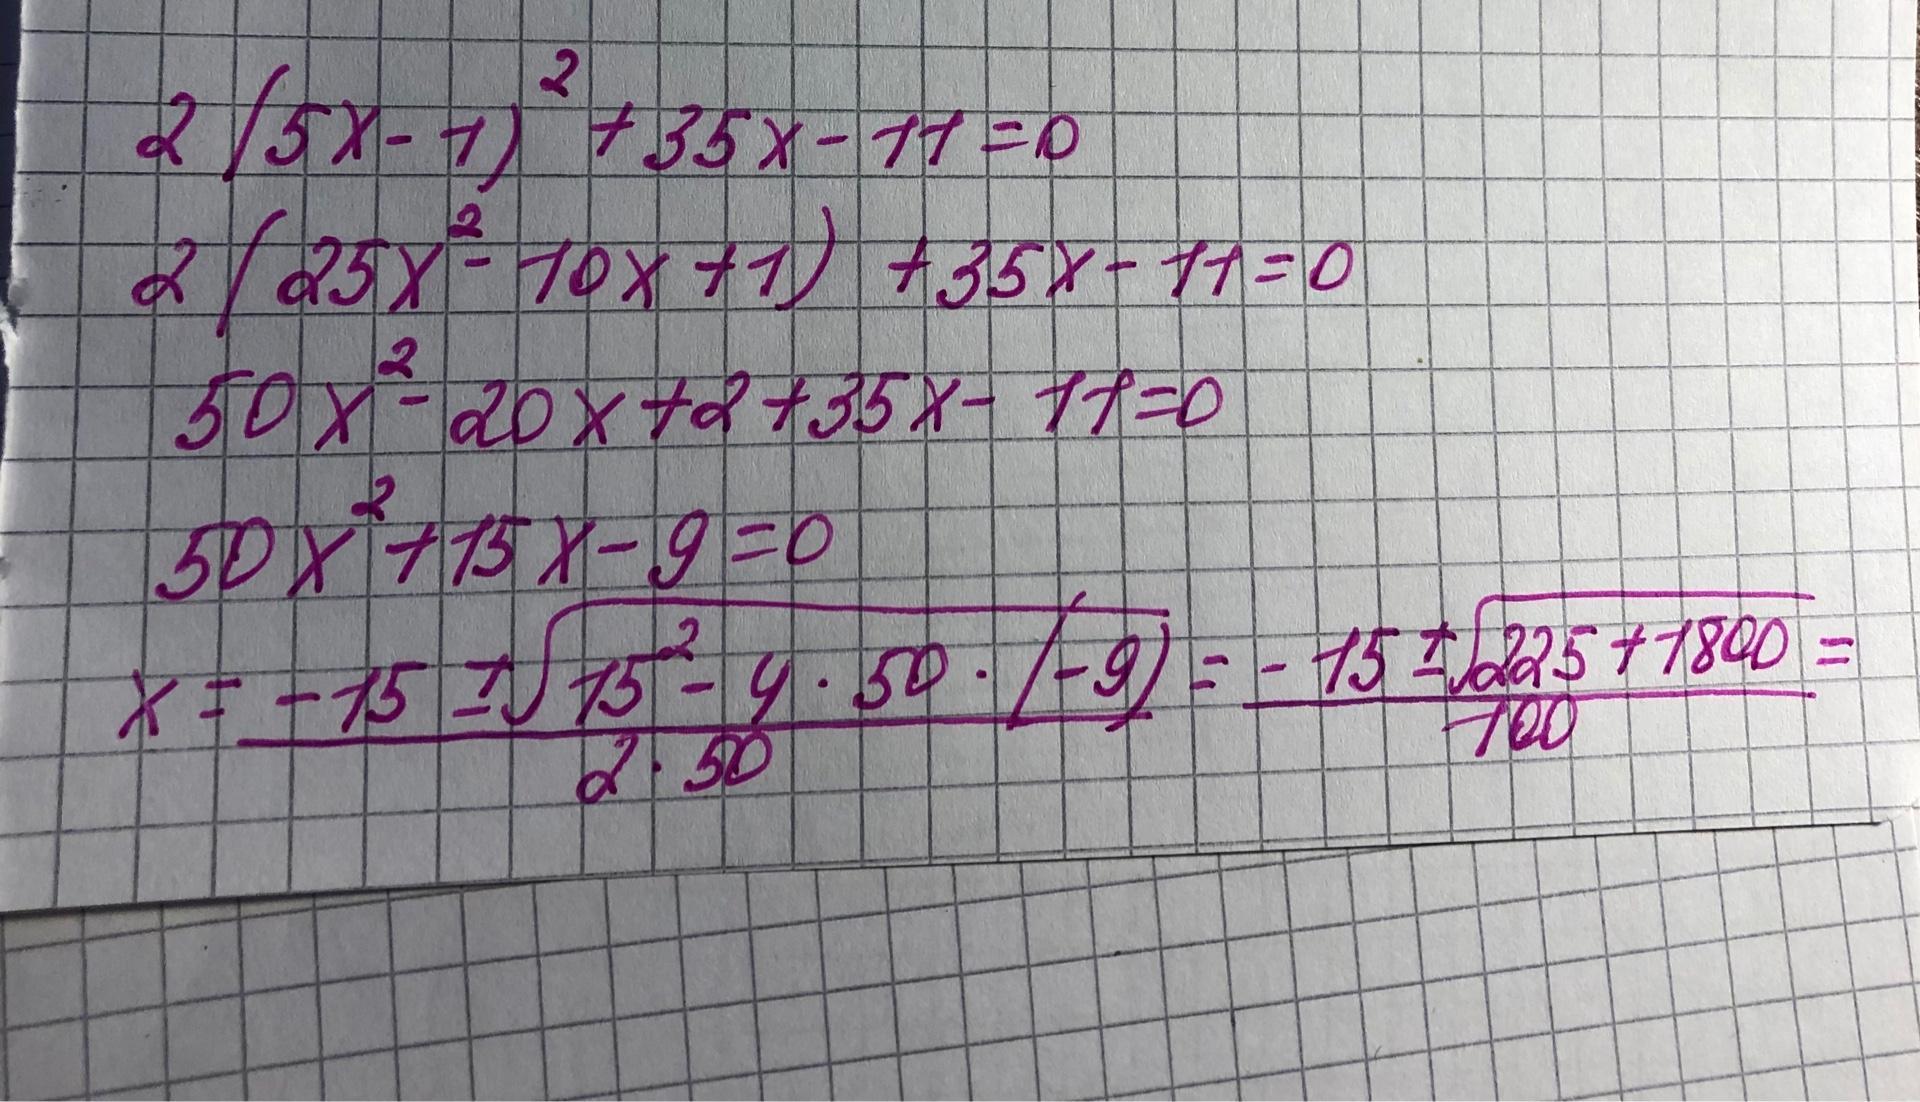 2(5x-1)² +35x-11=0
2(25x²-10x+1) +35x-11=0
50x²-20x+2+35x-11=0
50x²+15x-9=0
x = (-15 ± √(15²-4·50·(-9)))/(2·50) = (-15 ± √(225+1800))/100 =